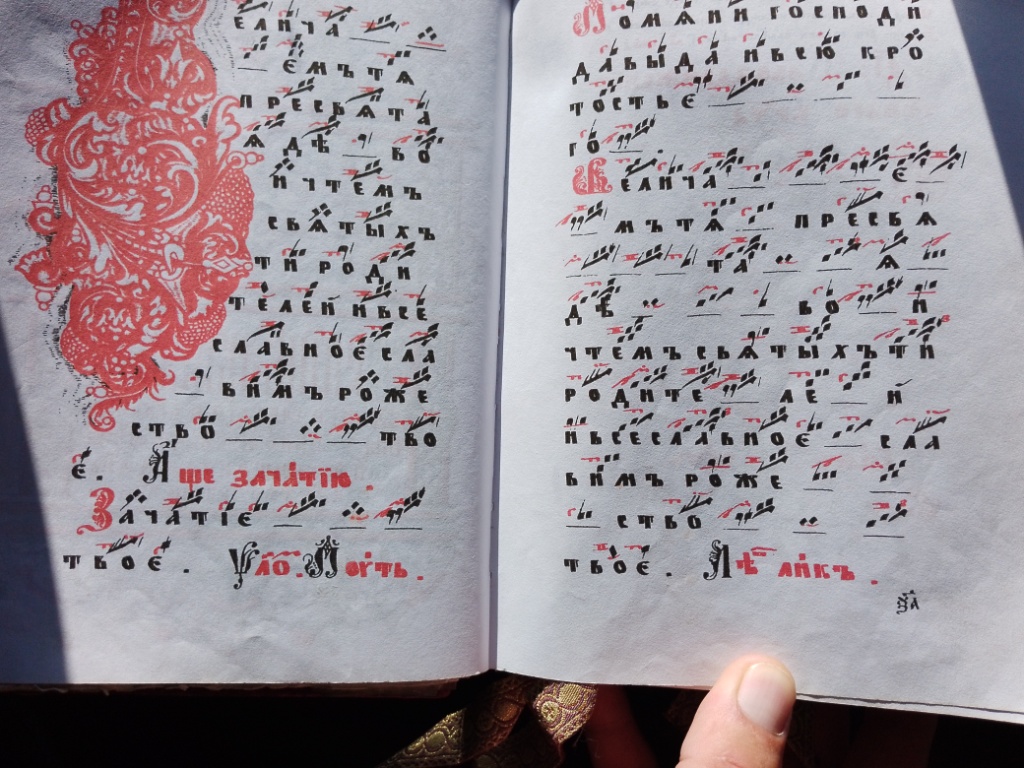 елича
емъ тѧ
пресвѧта
ѧ дѣ во
и чтемъ
свѧтыхъ
ти роди
телей и все
славное сла
вимъ роже
ство тво
є. Аще зача́тїю.
Зачатїе
твоє. Пою́ть.
Помѧни господи
давыда и всю кро
тость є
го.
Велича є
мъ тѧ пресвѧ
та ѧ
дѣ во и
чтемъ свѧтыхъ ти
родите ле й
и всеславноє сла
вимъ роже
ство
твоє. Лѣ ли́къ.